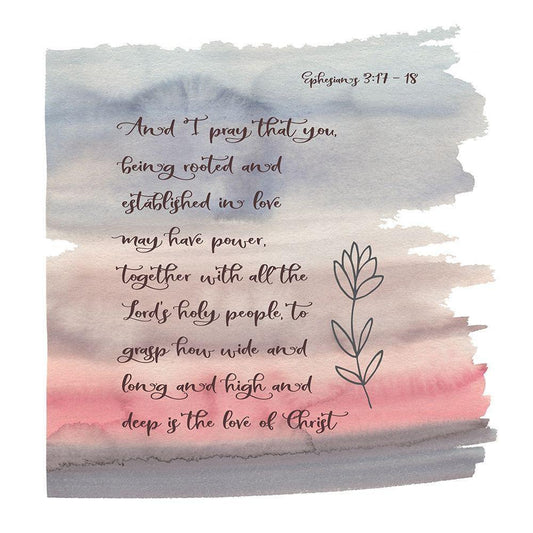 Ephesians 3:17 - 18
And I pray that you,
being rooted and
established in love
may have power,
together with all the
Lord's holy people, to
grasp how wide and
long and high and
deep is the love of Christ